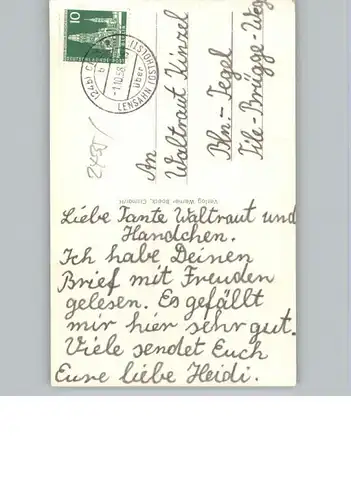 10
(24b)
über
-1.10.58
LENSAHN (OST
2450/
An
Waltraut Kinzel
Bln.-Tegel
Tile-Brügge-Weg
Verlag Werner
Liebe Tante Waltraut und
Handchen.
Ich habe Deinen
Brief mit Freuden
gelesen. Es gefällt
mir hier sehr gut.
Viele sendet Euch
Eure liebe Heidi.